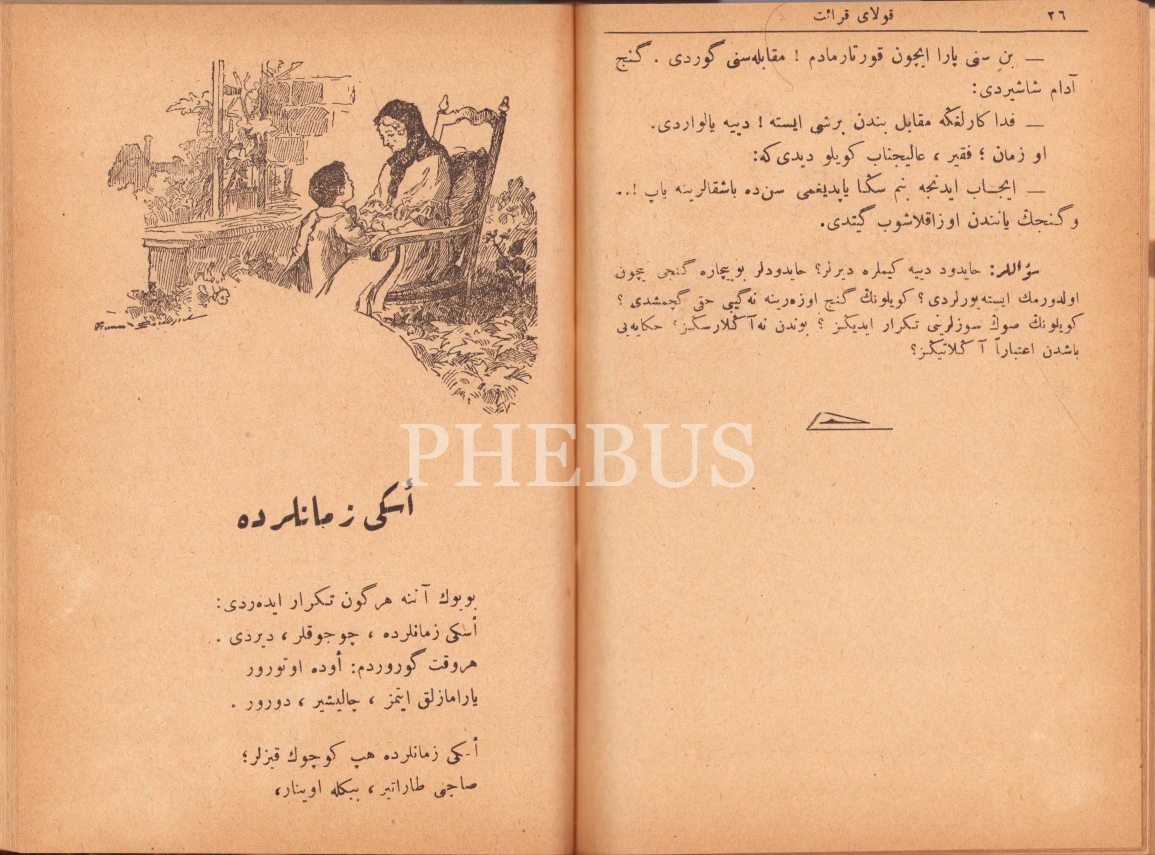 ٢٦
قولای قرائت
— بن سنی پارا ایچون قورتارمادم ! مقابله‌سنی گوردی . گنج
آدام شاشیردی:
— فداکارلغکه مقابل بندن برشی ایسته ! دییه یالواردی.
او زمان ؛ فقیر ، عالیجناب کویلو دیدی‌که:
— ایجاب ایدنجه بنم سڭا یاپدیغمی سن‌ده باشقالرینه یاپ !..
وگنجڭ یانندن اوزاقلاشوب گیتدی.
سؤاللر: حایدود دییه کیملره دیرلر؟ حایدودلر بو بیچاره گنجی نیچون
اولدورمك ایسته‌یورلردی؟ کویلونڭ گنج اوزه‌رینه نه‌گیبی حقی گچمشدی ؟
کویلونڭ صوڭ سوزلرینی تکرار ایدیڭز ؟ بوندن نه‌آڭلارسڭز؟ حکایه‌یی
باشدن اعتباراً آڭلاتیڭز؟
PHEBUS
أسکی زمانلرده
بویوك آننه هرگون تکرار ایده‌ردی:
أسکی زمانلرده ، چوجوقلر ، دیردی .
هروقت گوروردم: أوده اوتورور
یارامازلق ایتمز ، چالیشیر ، دورور .
أسکی زمانلرده هپ کوچوك قیزلر؛
صاچنی طاراتیر ، ببکله اوینار،